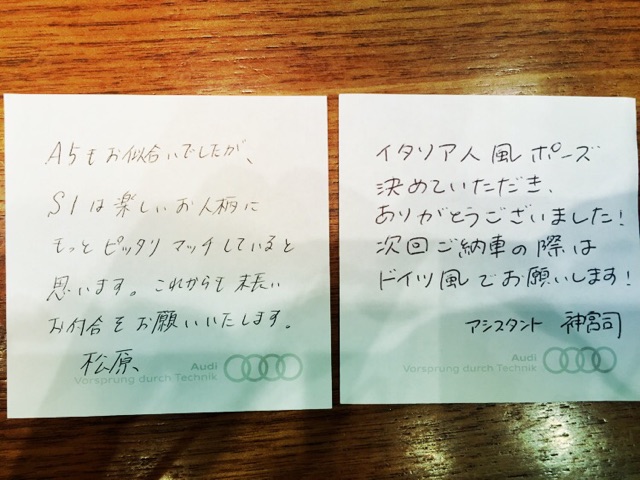 A5もお似合いでしたが、
S1は楽しいお人柄に
もっとピッタリマッチしていると
思います。これからも末長い
お付合をお願いいたします。
松原、
Audi
Vorsprung durch Technik
イタリア人風ポーズ
決めていただき、
ありがとうございました!
次回ご納車の際は
ドイツ風でお願いします!
アシスタント 神宮司
Audi
Vorsprung durch Technik